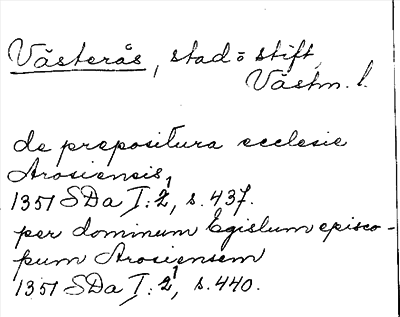 Västerås, stad o stift,
Västm. l.
de prepositura ecclesie
Arosiensis,
1351 SDa I:2, s. 437.
per dominum Egislum episco-
pum Arosiensem
1351 SDa I:2, s. 440.